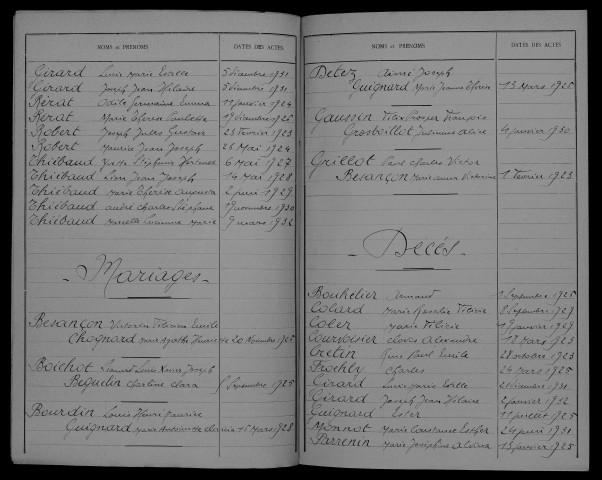 NOMS et PRÉNOMS DATES DES ACTES
Girard Lucie Marie 1931
Girard Joseph Jean Hilaire 1931
Rérat Odile Germaine Emma 11 janvier 1924
Rérat Marie 1925
Robert Joseph Jules Gustave 23 Février 1923
Robert Maurice Jean Joseph 26 Mai 1924
Thiébaud Yvette Stéphanie 6 Mai 1927
Thiébaud Léon Jean Joseph 14 Mai 1928
Thiébaud Marie Thérèse 2 juin 1929
Thiébaud André Charles Stéphane novembre 1930
Thiébaud Marcelle Suzanne Marie 9 mars 1932
- Mariages -
Besançon Victorin Emile
Chognard Marie Agathe 20 Novembre 1925
Boichot Louis Xavier Joseph
Béguelin Charline Clara Septembre 1925
Bourdin Louis Henri Maurice
Guignard Marie Antoinette 15 Mars 1928
NOMS et PRÉNOMS DATES DES ACTES
Detez Aimé Joseph
Guignard Marie Jeanne 13 Mars 1925
Gaussin Félix Prosper François
Grosboillot Alice janvier 1930
Grillot Paul Charles Victor
Besançon Marie Victorine 1 Février 1923
- Décés -
Bouhelier Armand Septembre 1925
Colard Marie Félicie 8 Septembre 1927
Coler Marie Félicie janvier 1929
Courvoisier Clovis Alexandre 18 Mars 1923
Cretin Paul Emile 28 octobre 1923
Froehly Charles 24 Mars 1925
Girard Lucie Marie 1931
Girard Joseph Jean Hilaire 2 janvier 1932
Guignard Ester juillet 1925
Monnot Marie Constance 24 juin 1931
Parrenin Marie Joséphine 13 janvier 1925